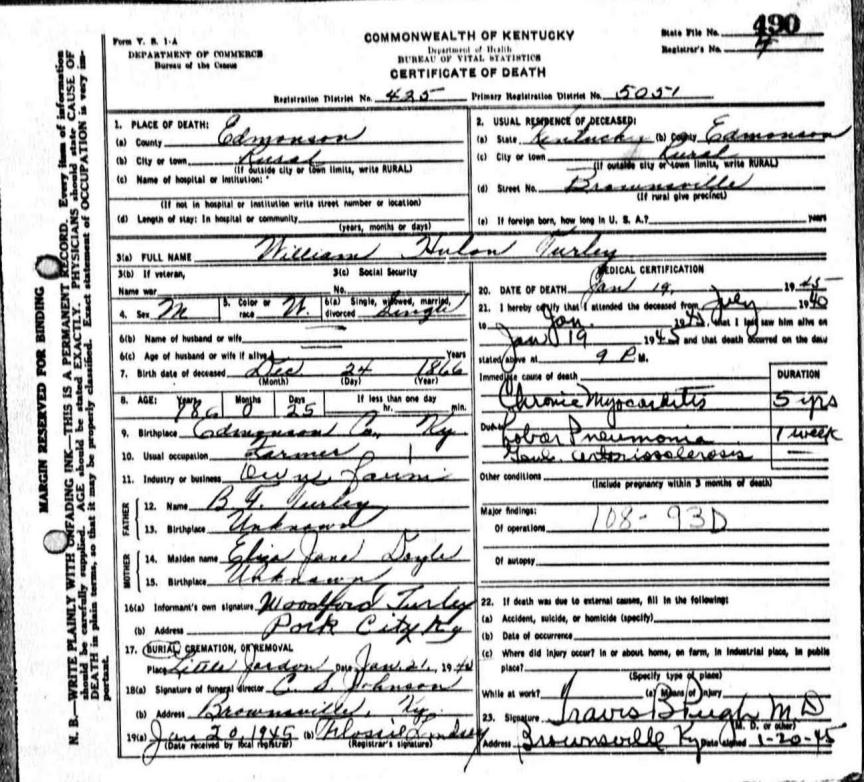 490
State File No.
Registrar's No. 4
Form V. S. 1-A
DEPARTMENT OF COMMERCE
Bureau of the Census
COMMONWEALTH OF KENTUCKY
Department of Health
BUREAU OF VITAL STATISTICS
CERTIFICATE OF DEATH
Registration District No. 425 Primary Registration District No. 5051
MARGIN RESERVED FOR BINDING
N. B.—WRITE PLAINLY WITH UNFADING INK—THIS IS A PERMANENT RECORD. Every item of information
should be carefully supplied. AGE should be stated EXACTLY. PHYSICIANS should state CAUSE OF
DEATH in plain terms, so that it may be properly classified. Exact statement of OCCUPATION is very im-
portant.
1. PLACE OF DEATH:
(a) County Edmonson
(b) City or town Rural
(If outside city or town limits, write RURAL)
(c) Name of hospital or institution:
(If not in hospital or institution write street number or location)
(d) Length of stay: In hospital or community
(years, months or days)
2. USUAL RESIDENCE OF DECEASED:
(a) State Kentucky (b) County Edmonson
(c) City or town Rural
(If outside city or town limits, write RURAL)
(d) Street No. Brownsville
(If rural give precinct)
(e) If foreign born, how long in U. S. A.? years
3(a) FULL NAME William Hulon Turley
3(b) If veteran,
Name war
3(c) Social Security
No.
4. Sex M 5. Color or race W. 6(a) Single, widowed, married, divorced Single
6(b) Name of husband or wife
6(c) Age of husband or wife if alive Years
7. Birth date of deceased Dec 24 1866
(Month) (Day) (Year)
8. AGE: Years Months Days If less than one day
0 25 hr. min.
9. Birthplace Edmonson Co, Ky
10. Usual occupation Farmer
11. Industry or business Own farm
FATHER
12. Name B. F. Turley
13. Birthplace Unknown
MOTHER
14. Maiden name Eliza Jane Doyle
15. Birthplace Unknown
16(a) Informant's own signature Woodford Turley
(b) Address Park City Ky
17. BURIAL, CREMATION, OR REMOVAL
Place Little Jordon Date Jan 21, 1945
18(a) Signature of funeral director C. S. Johnson
(b) Address Brownsville, Ky.
19(a) Jan 20, 1945 (b) Lindsey
(Date received by local registrar) (Registrar's signature)
MEDICAL CERTIFICATION
20. DATE OF DEATH Jan 19, 1945
21. I hereby certify that I attended the deceased from July 1940
to Jan. 1945, that I last saw him alive on
Jan 19 1945 and that death occurred on the date
stated above at 9 P. M.
Immediate cause of death DURATION
Chronic Myocarditis 5 yrs
Due to Lobar Pneumonia 1 week
arteriosclerosis
Other conditions
(Include pregnancy within 3 months of death)
Major findings: 108-93D
Of operations
Of autopsy
22. If death was due to external causes, fill in the following:
(a) Accident, suicide, or homicide (specify)
(b) Date of occurrence
(c) Where did injury occur? in or about home, on farm, in industrial place, in public
place?
(Specify type of place)
While at work? (e) Means of injury
23. Signature Travis B Pugh M D
(M. D. or other)
Address Brownsville Ky Date signed 1-20-45